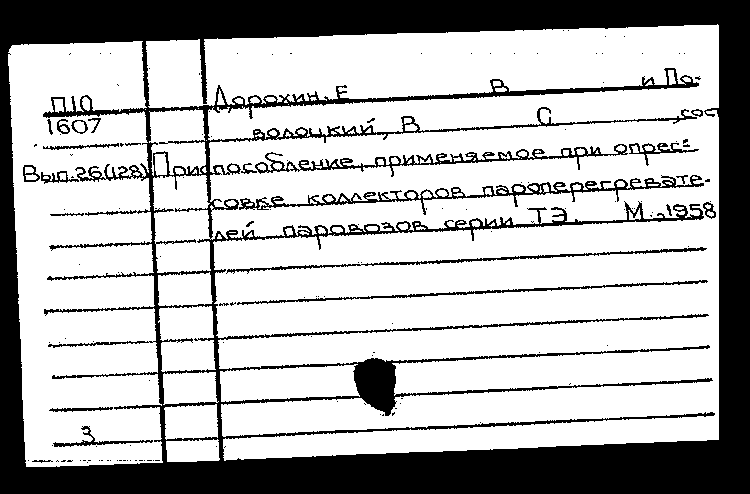 П10 Дорохин, Е В и По-
1607 волоцкий, В С , сост
Вып.26(128) Приспособление, применяемое при опрес-
совке коллекторов пароперегревате-
лей паровозов серии ТЭ. М., 1958
3